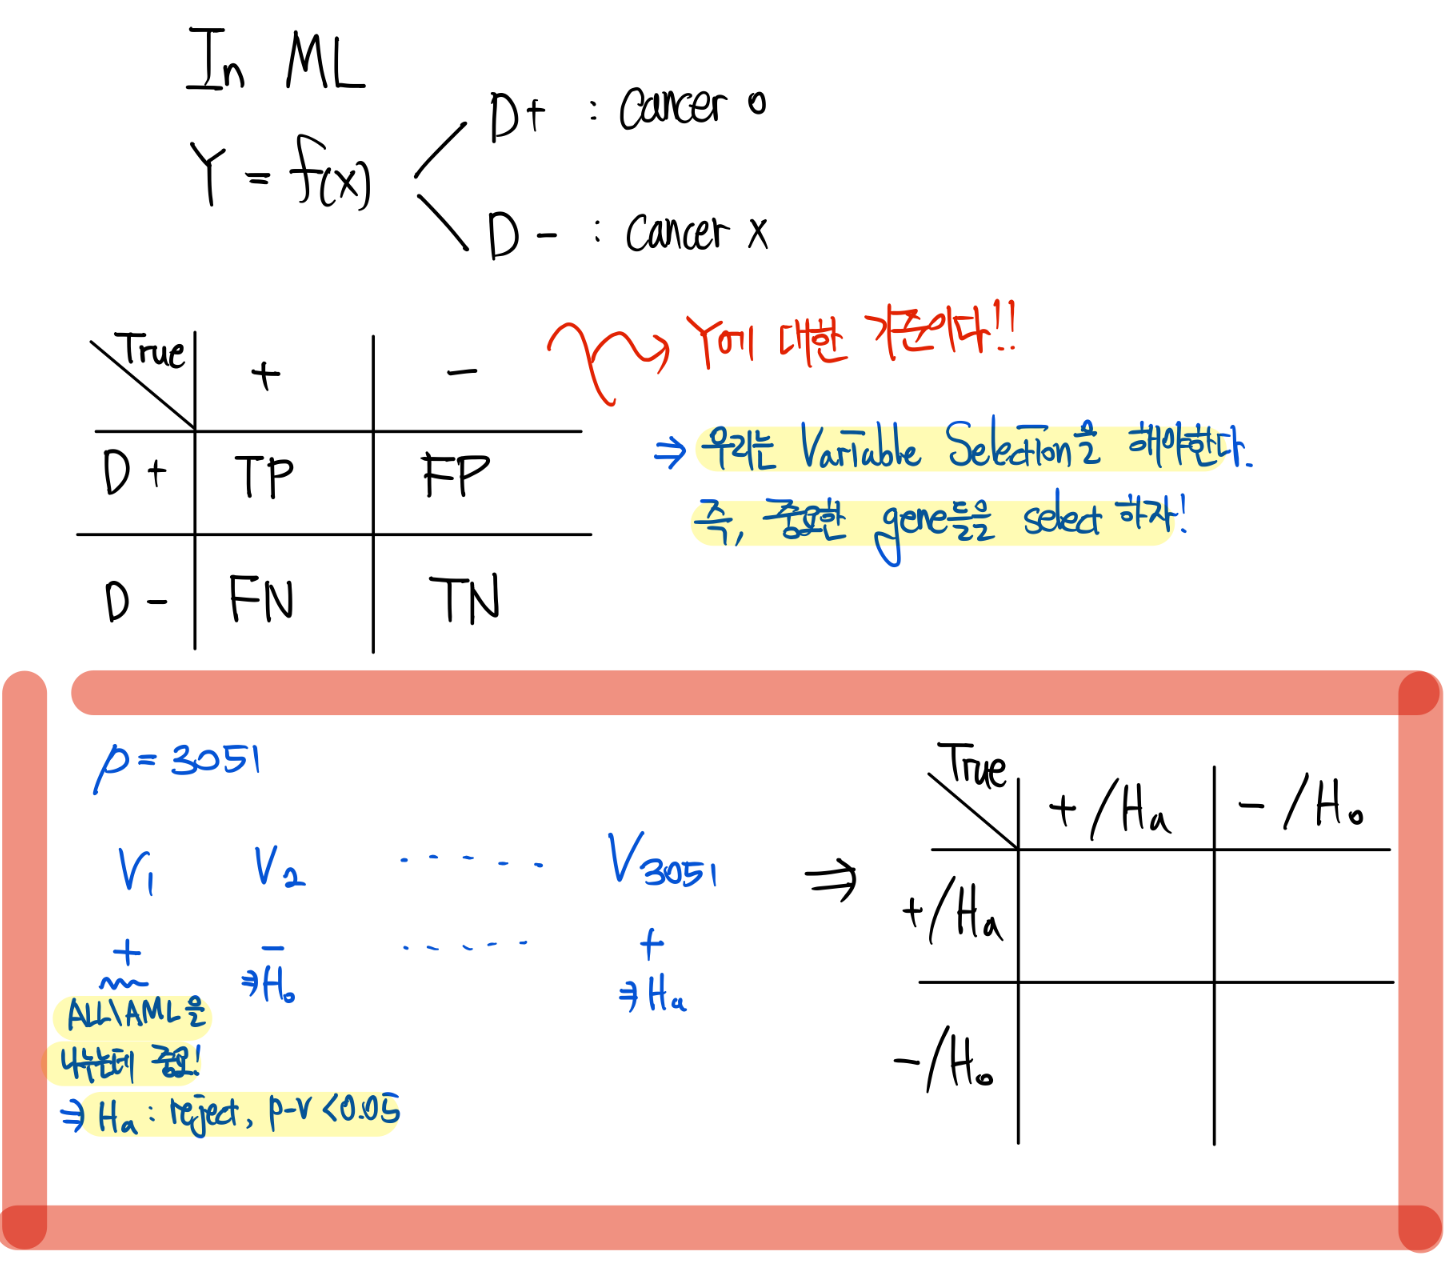 In ML
Y = f(x)
D+ : Cancer o
D- : Cancer x
True + -
D+ TP FP
D- FN TN
Y에 대한 기준이다!!
⇒ 우리는 Variable Selection을 해야한다.
즉, 중요한 gene들을 select 하자!
p = 3051
V₁ V₂ ..... V₃₀₅₁
+ - ..... +
⇒H₀ ⇒Hₐ
ALL\AML을
나누는데 중요!
⇒ Hₐ : reject, p-v <0.05
⇒
True +/Hₐ -/H₀
+/Hₐ
-/H₀